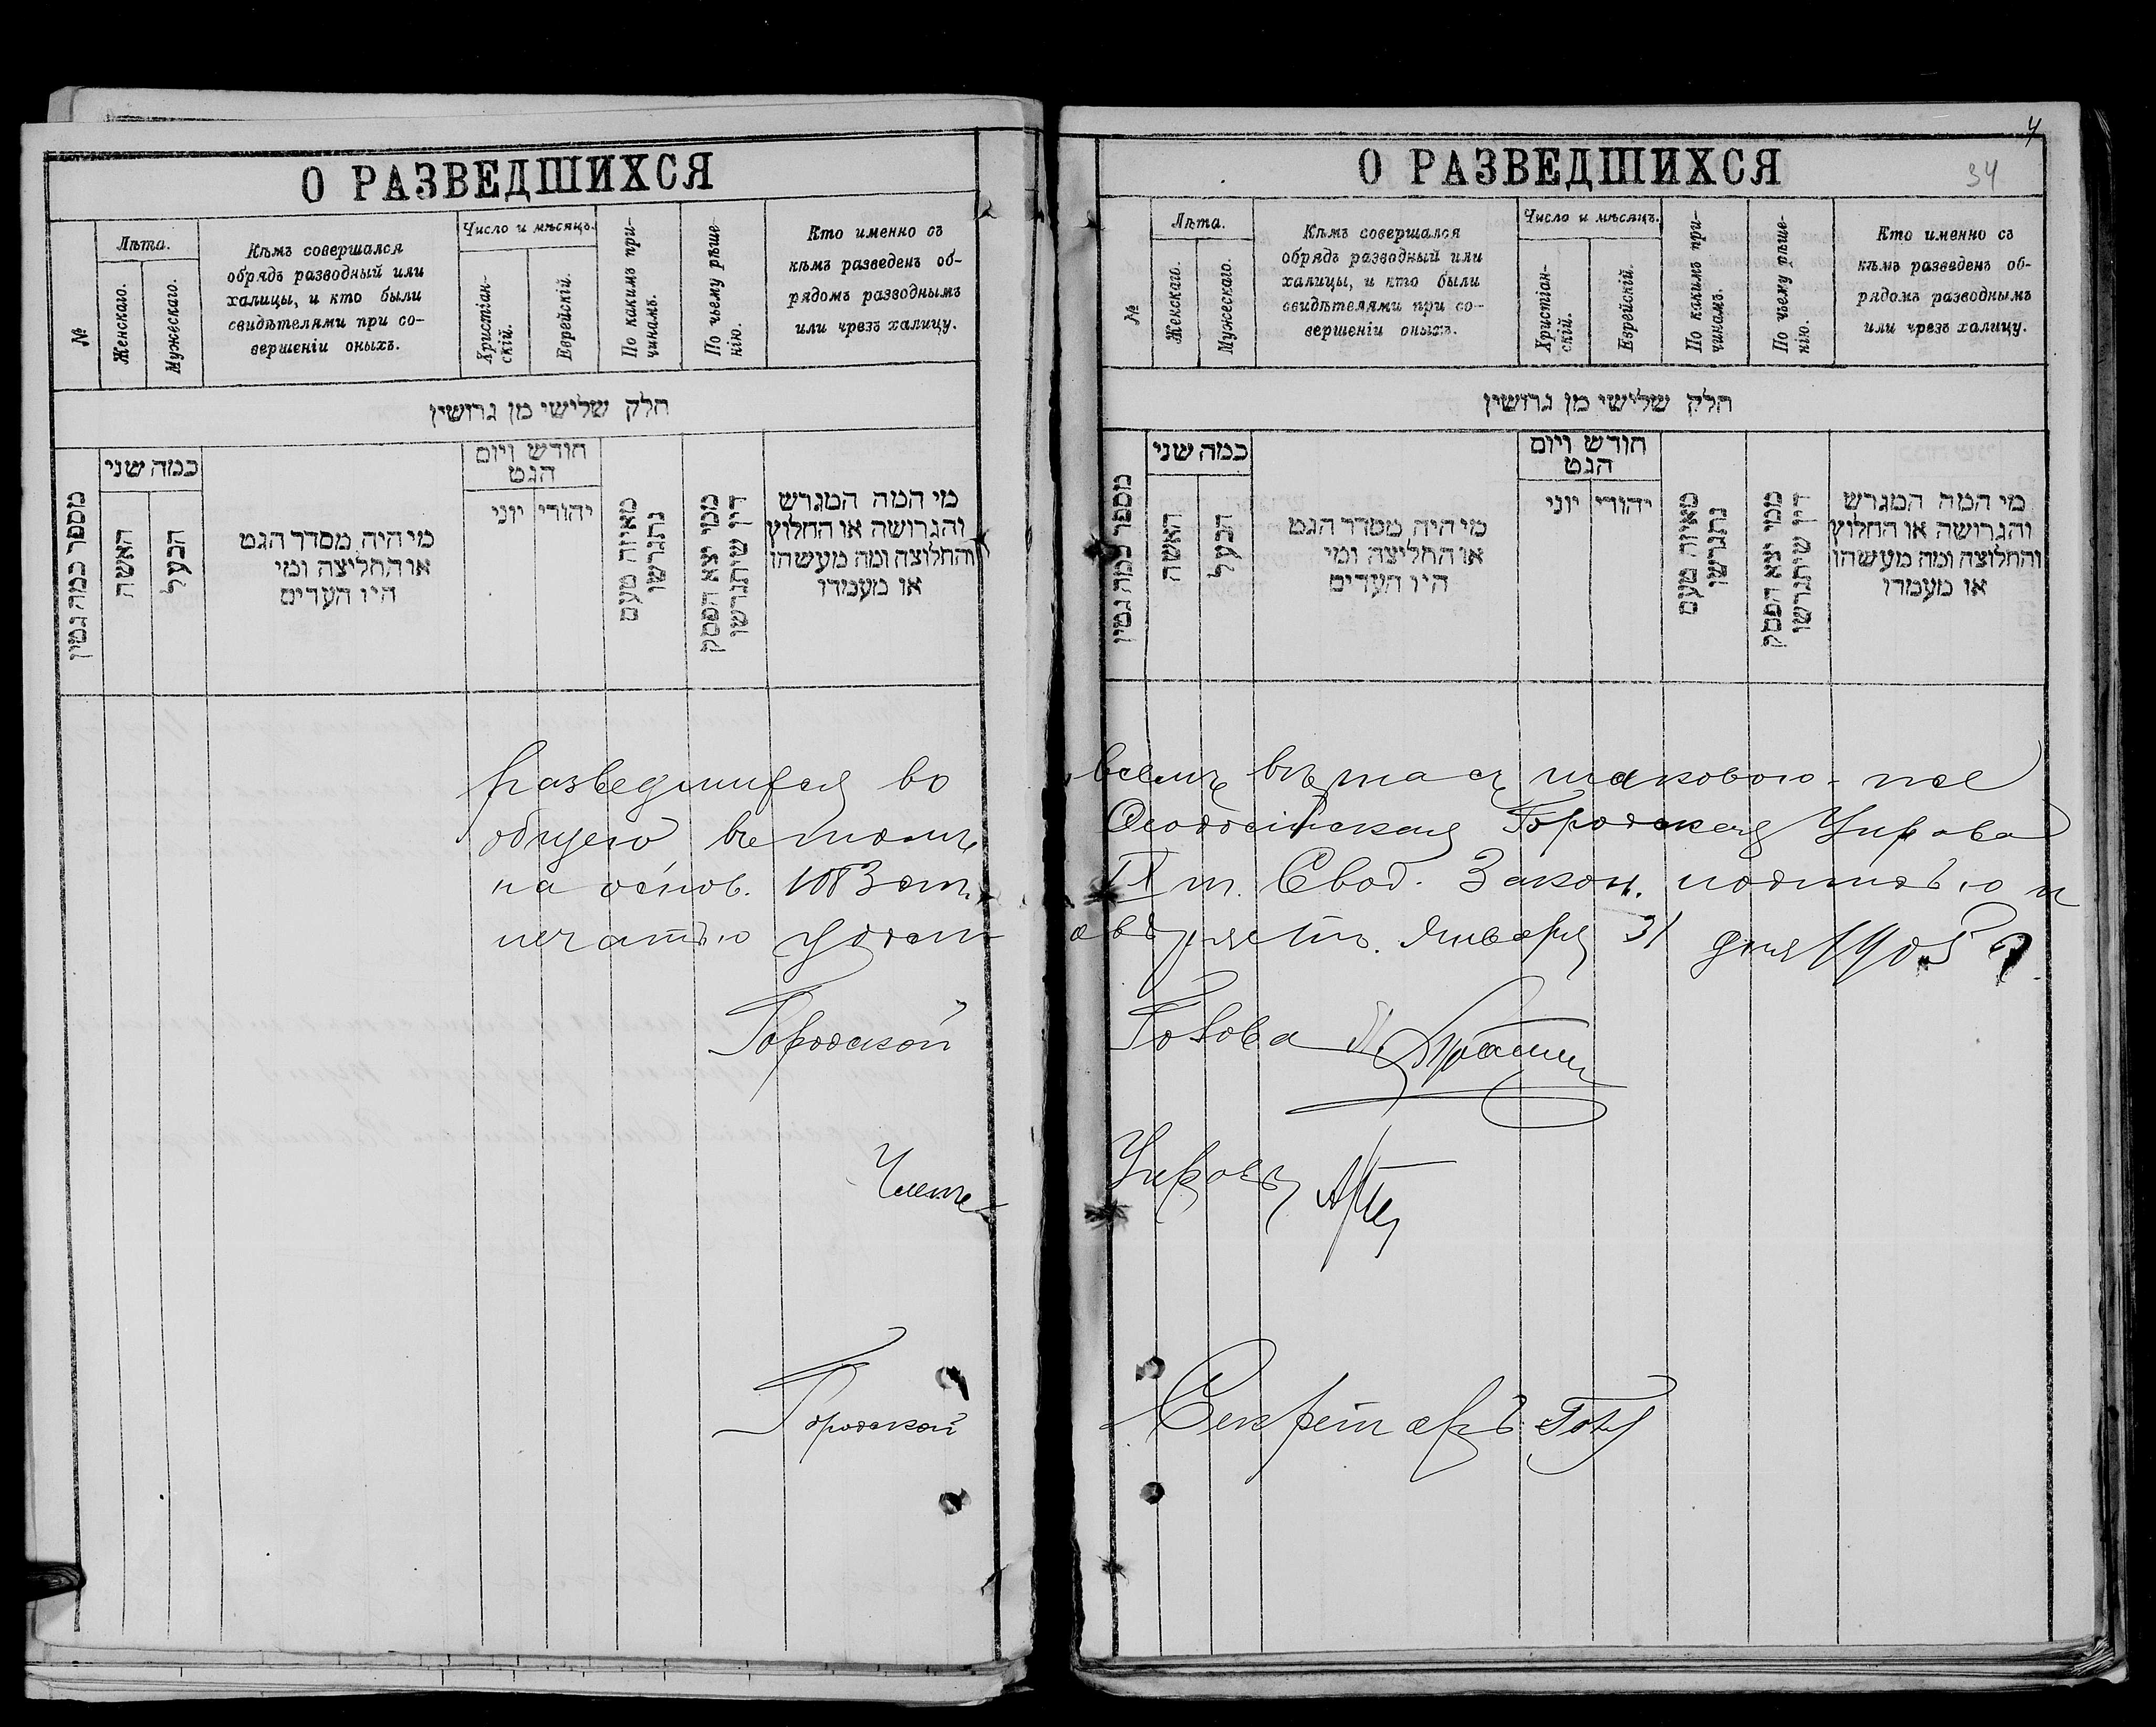 О РАЗВЕДШИХСЯ
№
Лѣта.
Женскаго.
Мужескаго.
Кѣмъ совершался
обрядъ разводный или
халицы, и кто были
свидѣтелями при со-
вершеніи оныхъ.
Число и мѣсяцъ.
Христіан-
скій.
Еврейскій.
По какимъ при-
чинамъ.
По чьему рѣше-
нію.
Кто именно съ
кѣмъ разведенъ об-
рядомъ разводнымъ
или чрезъ халицу.
חלק שלישי מן גרושין
מספר כמה גטין
כמה שני
האשה
הבעל
מי היה מסדר הגט
או החליצה ומי
היו העדים
חודש ויום
הגט
יוני
יהודי
מאיזה טעם
נתגרשו
ממי יצא הפסק
דין שיתגרשו
מי המה המגרש
והגרושה או החלוץ
והחלוצה ומה מעשהו
או מעמדו
разведшихся во
общею въ томъ
на основ. 1083 ст.
печатью удост
Городской
Членъ
Городской
4
34
О РАЗВЕДШИХСЯ
№
Лѣта.
Женскаго.
Мужескаго.
Кѣмъ совершался
обрядъ разводный или
халицы, и кто были
свидѣтелями при со-
вершеніи оныхъ.
Число и мѣсяцъ.
Христіан-
скій.
Еврейскій.
По какимъ при-
чинамъ.
По чьему рѣше-
нію.
Кто именно съ
кѣмъ разведенъ об-
рядомъ разводнымъ
или чрезъ халицу.
חלק שלישי מן גרושין
מספר כמה גטין
כמה שני
האשה
הבעל
מי היה מסדר הגט
או החליצה ומי
היו העדים
חודש ויום
הגט
יוני
יהודי
מאיזה טעם
נתגרשו
ממי יצא הפסק
דין שיתגרשו
מי המה המגרש
והגרושה או החלוץ
והחלוצה ומה מעשהו
או מעמדו
всемъ вѣрна съ таковою-же
Ѳеодосійская Городская Управа
IX т. Свод. Закон. подписью и
овѣряетъ. Января 31 дня 1905 г.
Голова
Управы
Секретарь